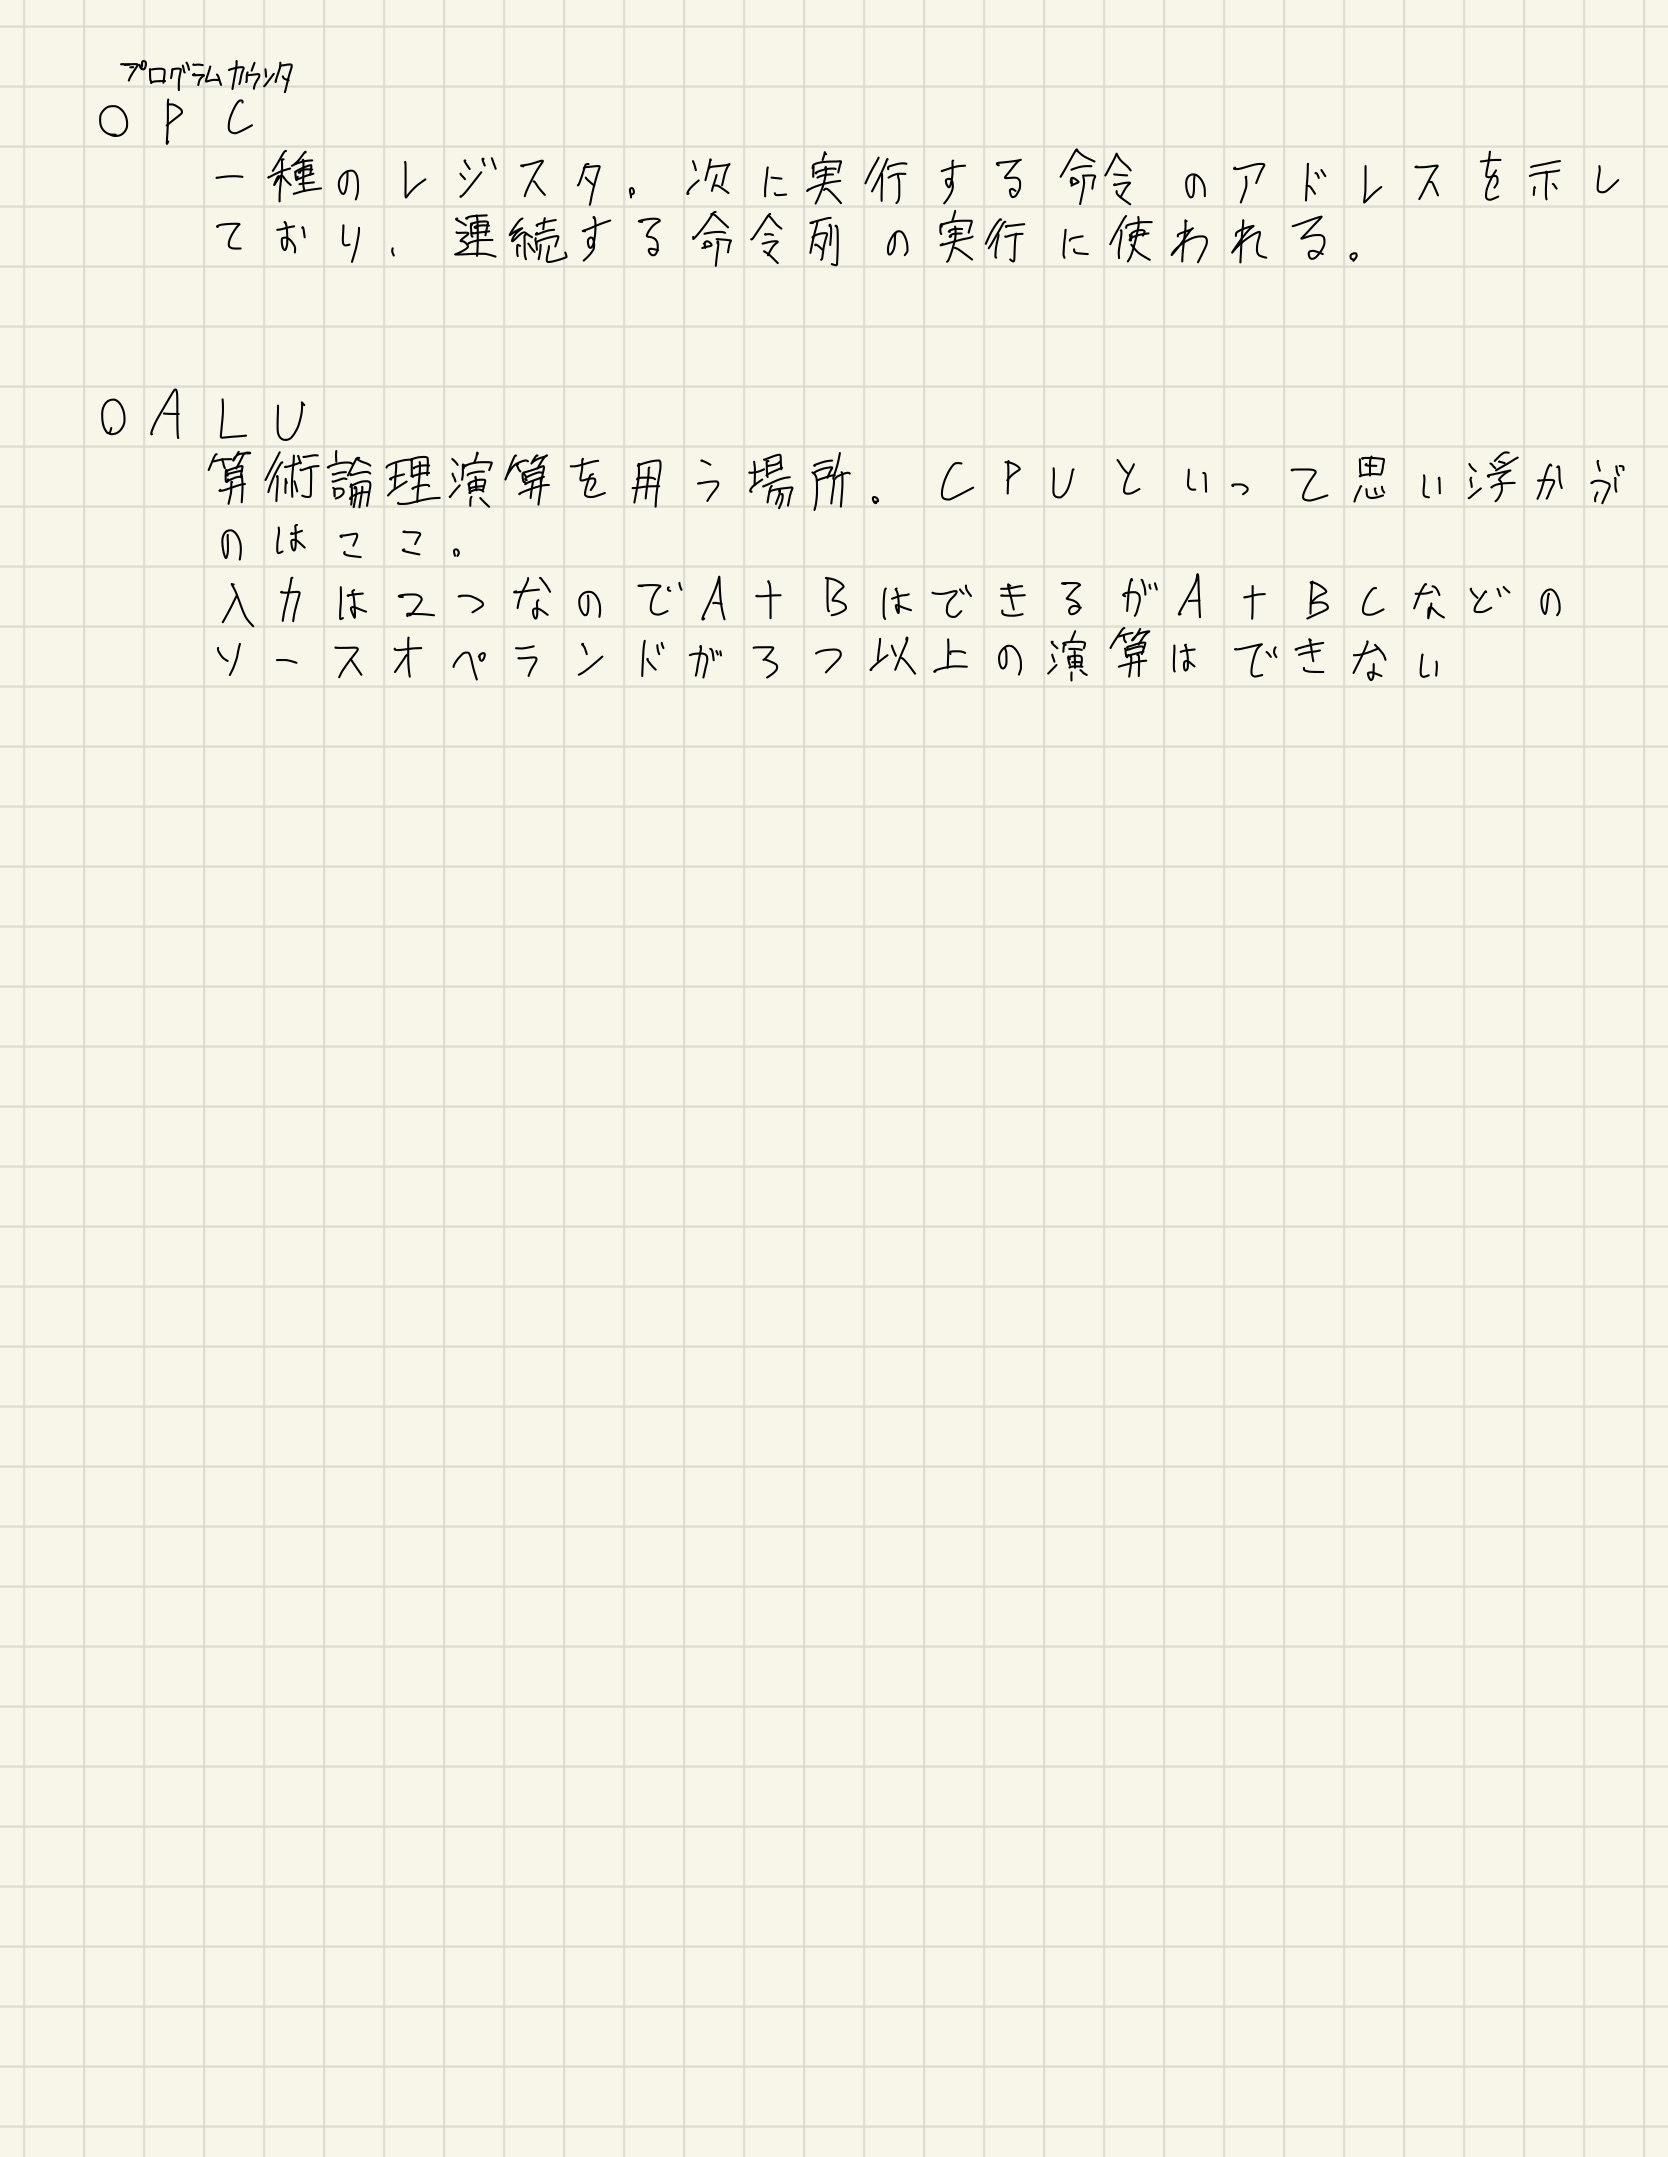 プログラムカウンタ
○PC
一種のレジスタ。次に実行する命令のアドレスを示し
ており、連続する命令列の実行に使われる。
○ALU
算術論理演算を用う場所。CPUといって思い浮かぶ
のはここ。
入力は2つなのでA+BはできるがA+BCなどの
ソースオペランドが3つ以上の演算はできない